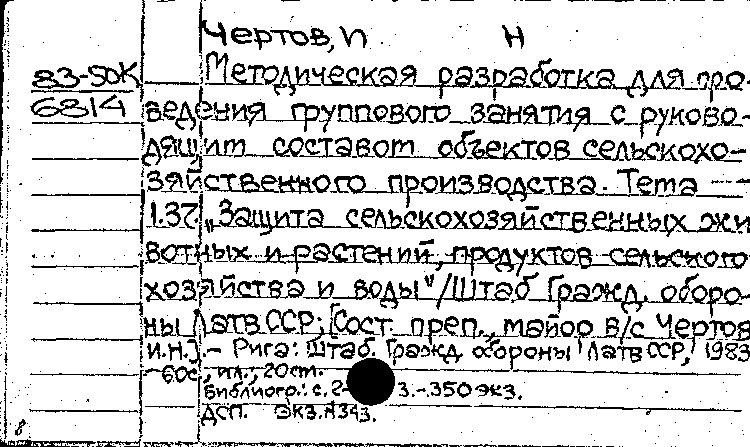 Чертов, И Н
83-50К Методическая разработка для про-
6814 ведения группового занятия с руково-
дящим составом объектов сельскохо-
зяйственного производства. Тема --
1.37 „Защита сельскохозяйственных жи
вотных и растений, продуктов сельского
хозяйства и воды"/Штаб Гражд. оборо-
ны ЛатвССР; [Сост. преп., майор в/с Чертов
И.Н.]. - Рига: Штаб. Гражд. обороны ЛатвССР, 1983
-60с., ил.; 20см.
Библиогр.: с. 3.-350 экз.
ДСП. Экз.№343.
8